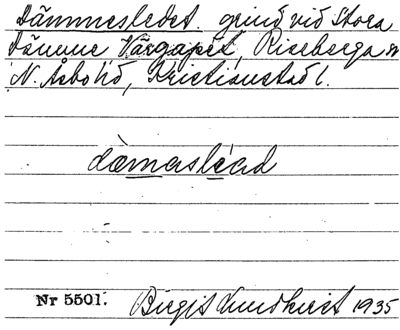 Dämmesledet. grind vid Stora
Dämme Vårgapet, Riseberga sn
N. Åsbo hd, Kristianstad l.
dæmasléad
Nr 5501. Birgit Lundkvist 1935